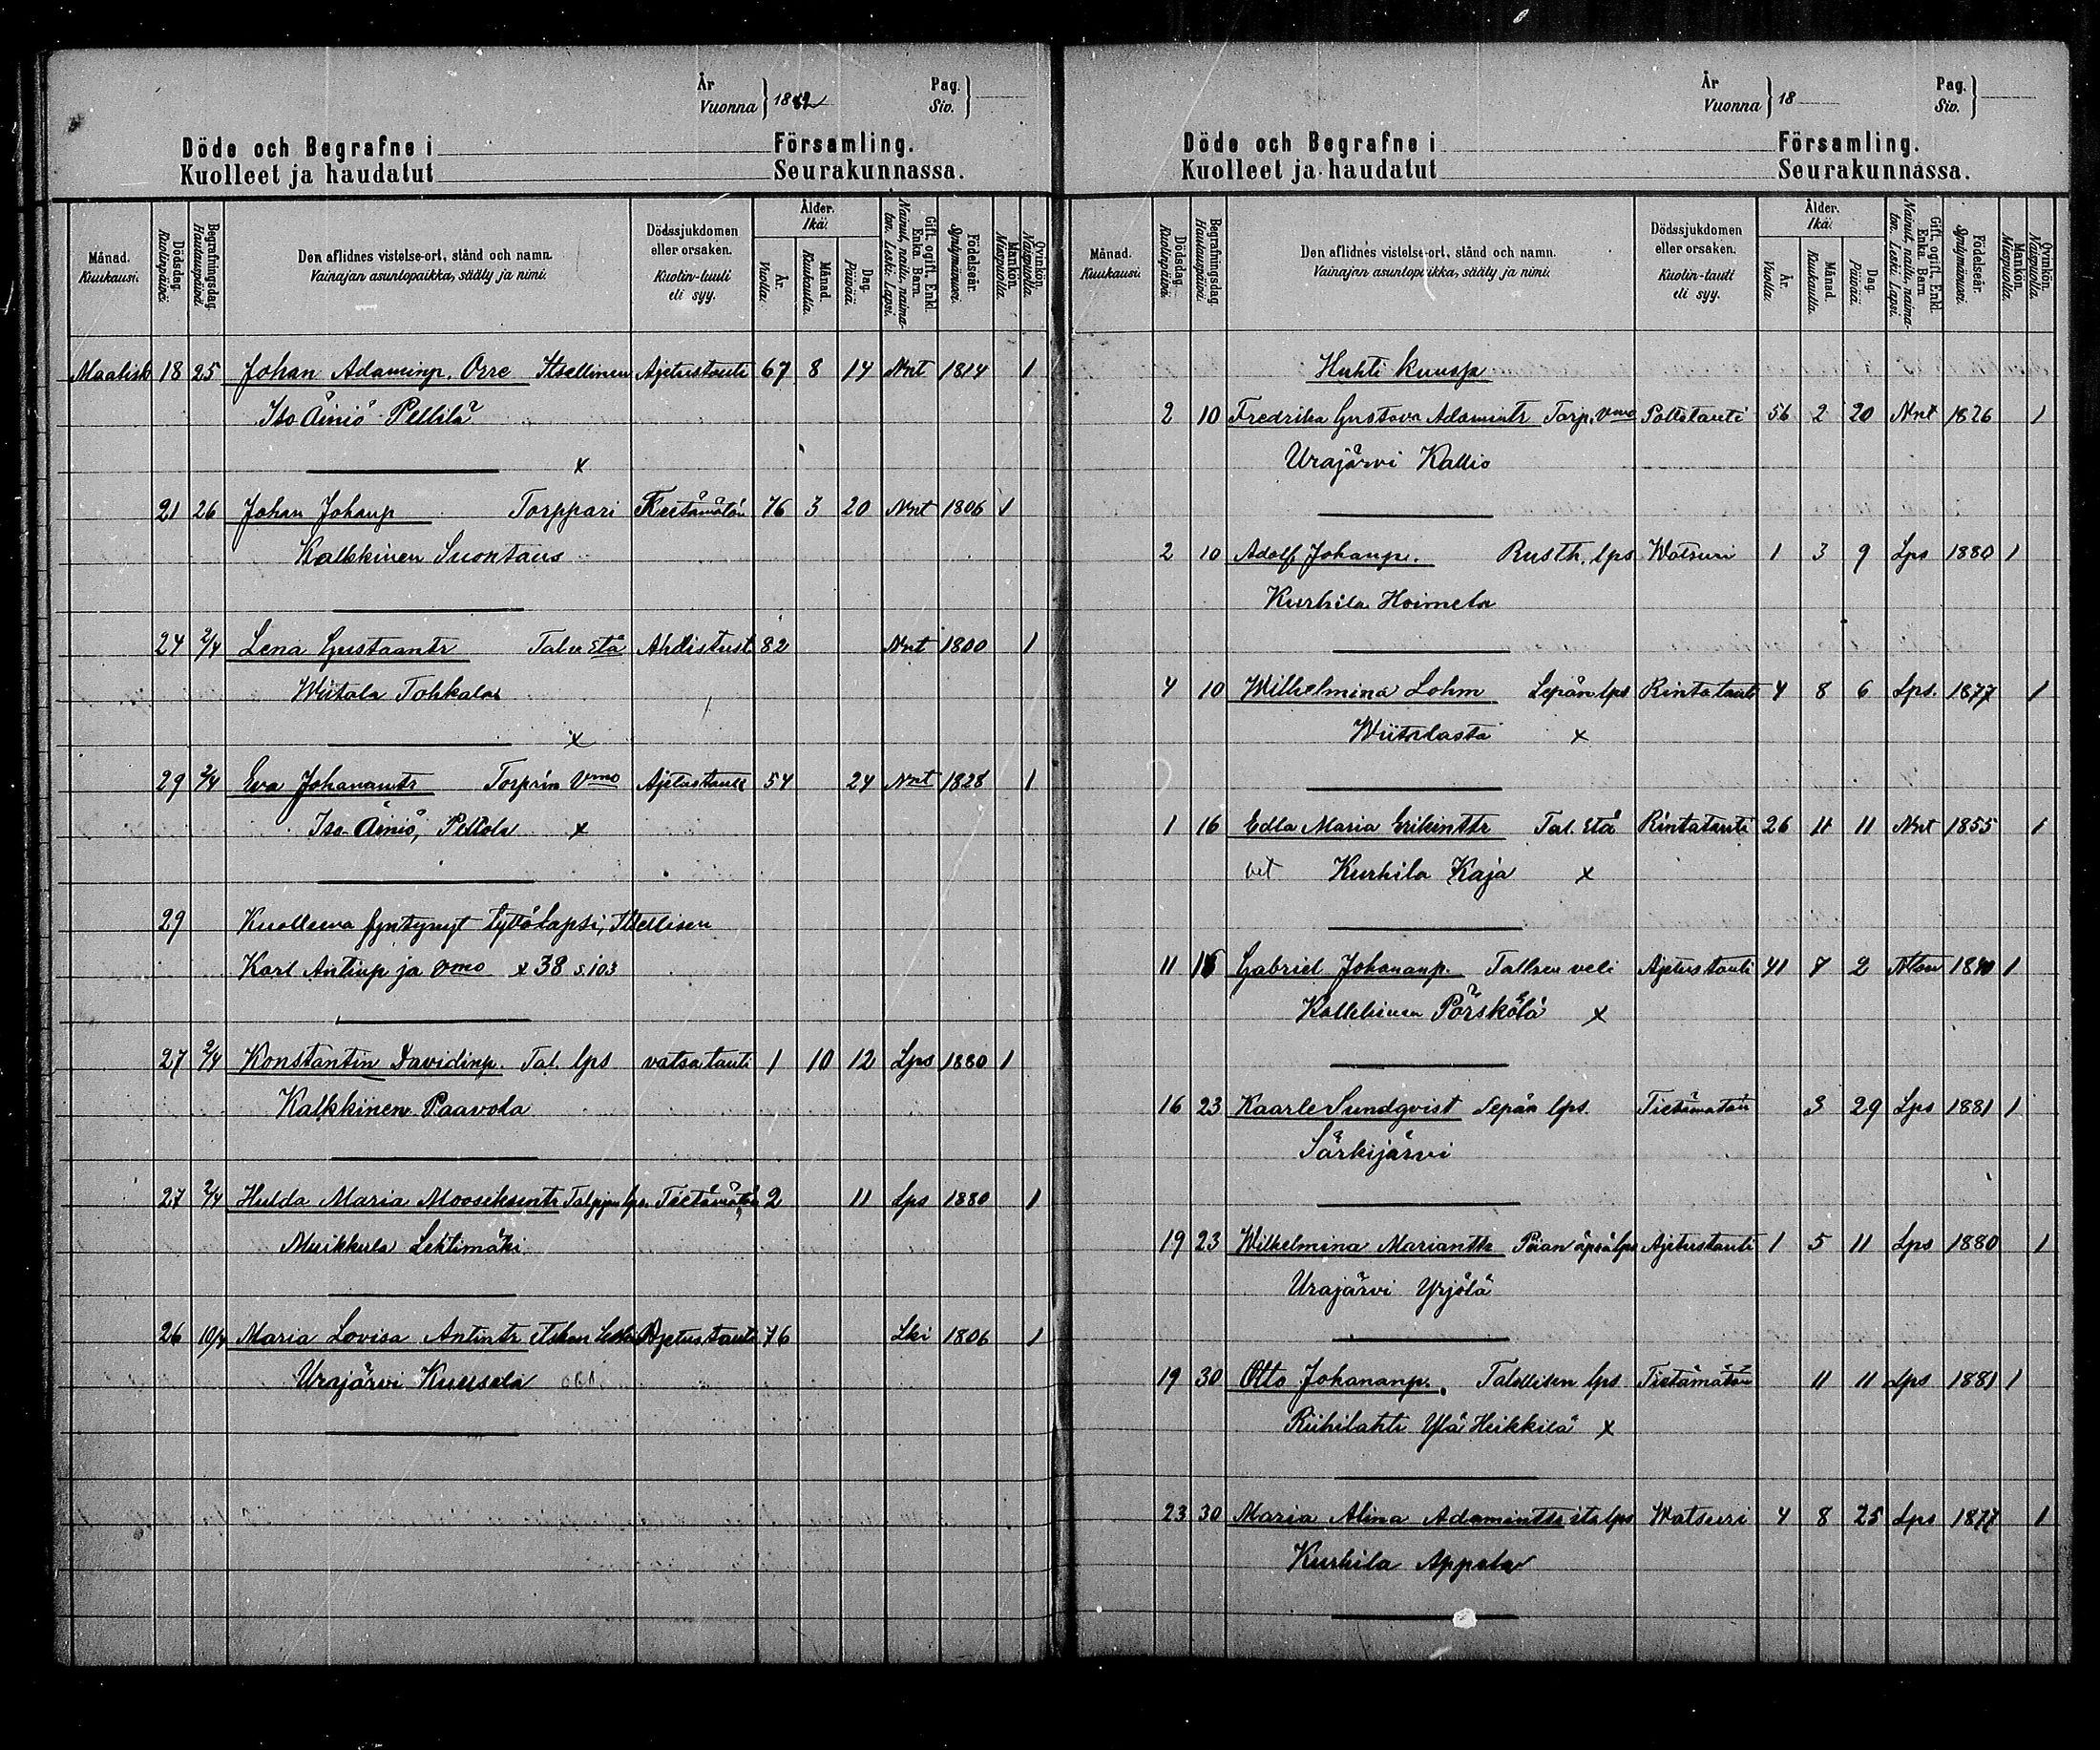 År
Vuonna } 1882
Pag.
Siv. }
Döde och Begrafne i Församling.
Kuolleet ja haudatut Seurakunnassa.
Månad. Kuukausi.
Dödsdag. Kuolinpäivä.
Begrafningsdag. Hautauspäivä.
Den aflidnes vistelse-ort, stånd och namn.
Vainajan asuntopaikka, sääty ja nimi.
Dödssjukdomen eller orsaken.
Kuolin-tauti eli syy.
Ålder. Ikä.
År. Vuotta.
Månad. Kuukautta.
Dag. Päivää.
Gift, ogift, Enkl. Enka. Barn.
Nainut, naitu, naimaton. Leski. Lapsi.
Födelseår. Syntymävuosi.
Mankön. Miespuolia.
Qvinkön. Naispuolia.
Maalisk 18 25 Johan Adaminp. Orre Itsellinen Ajetustauti 67 8 14 Nnt 1814 1
Iso Äiniö Pellilä
x
21 26 Johan Johanp Torppari Tietämätöin 76 3 20 Nnt 1806 1
Kalkkinen Suontaus
24 2/4 Lena Gustaantr Tal. Etä Ahdistust 82 Nnt 1800 1
Wiitala Tohkala
x
29 2/4 Eva Johanantr Torprin Vmo Ajetustauti 54 24 Nnt 1828 1
Iso-Äiniö, Peltola x
29 Kuolleena syntynyt tyttölapsi, Itsellisen
Karl Antinp ja Vmo x 38 s. 103
27 2/4 Konstantin Davidinp. Tal. lps vatsatauti 1 10 12 Lps 1880 1
Kalkkinen Paavola
27 2/4 Hulda Maria Mooseksentr lps. Tietämätöin 2 11 Lps 1880 1
Muikkula Lehtimäki
26 10/4 Maria Lovisa Antintr Leski Ajetustauti 76 Lki 1806 1
Urajärvi Kuusela
År
Vuonna } 18
Pag.
Siv. }
Döde och Begrafne i Församling.
Kuolleet ja haudatut Seurakunnassa.
Månad. Kuukausi.
Dödsdag. Kuolinpäivä.
Begrafningsdag. Hautauspäivä.
Den aflidnes vistelse-ort, stånd och namn.
Vainajan asuntopaikka, sääty ja nimi.
Dödssjukdomen eller orsaken.
Kuolin-tauti eli syy.
Ålder. Ikä.
År. Vuotta.
Månad. Kuukautta.
Dag. Päivää.
Gift, ogift, Enkl. Enka. Barn.
Nainut, naitu, naimaton. Leski. Lapsi.
Födelseår. Syntymävuosi.
Mankön. Miespuolia.
Qvinkön. Naispuolia.
Huhti kuusp
2 10 Fredrika Gustava Adamintr Torp. Vmo Polttotauti 56 2 20 Nnt 1826 1
Urajärvi Kallio
2 10 Adolf Johanp. Rusth. lps Watsuri 1 3 9 Lps 1880 1
Kurhila Hoimela
4 10 Wilhelmina Lohm Sepän lps Rintatauti 4 8 6 Lps. 1877 1
Wiitalasta x
1 16 Edla Maria Erikinttr Tal. Etä Rintatauti 26 11 11 Nnt 1855 1
Kurhila Kaja x
11 16 Gabriel Johananp. Tallsen veli Ajetustauti 41 7 2 Nton 1840 1
Kalkkinen Pörskölä x
16 23 Kaarle Sundqvist Sepän lps. Tietämätöin 3 29 Lps 1881 1
Särkijärvi
19 23 Wilhelmina Marianttr äpsälps Ajetustauti 1 5 11 Lps 1880 1
Urajärvi Yrjölä
19 30 Otto Johananp. Talollisen lps Tietämätöin 11 11 Lps 1881 1
Riihilahti Ylä Heikkilä x
23 30 Maria Alina Adaminttr its lps Watsuri 4 8 25 Lps 1877 1
Kurhila Appela